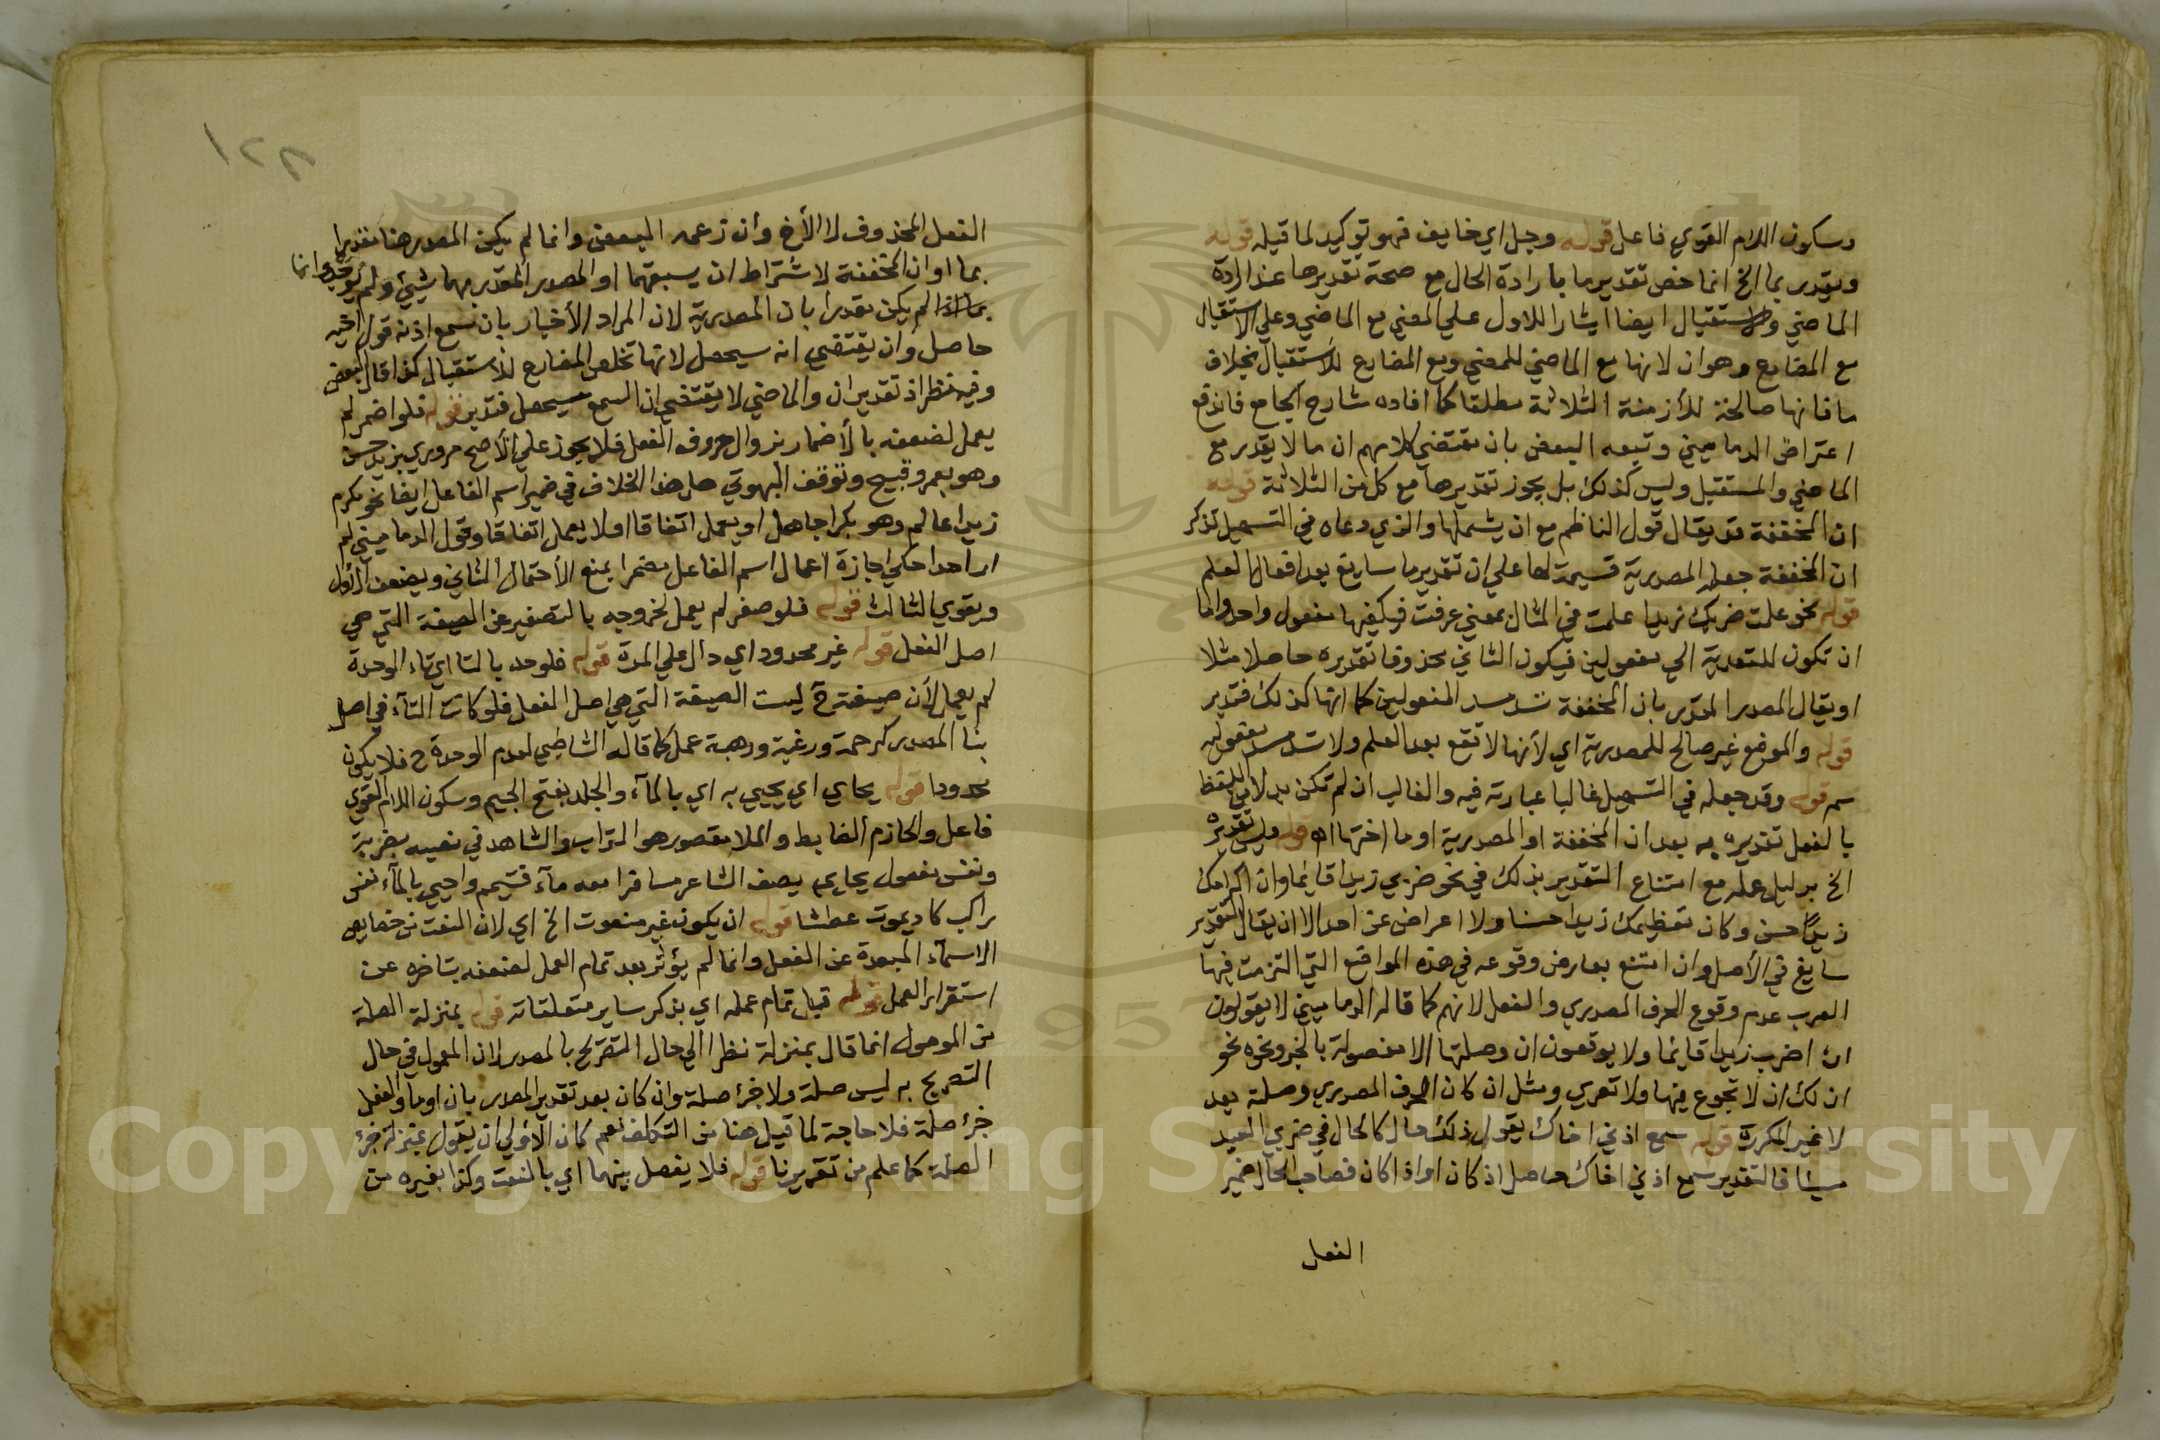 وسكون اللام القوي فاعل قوله وجل اي خايف فهو توكيد لما قبله قوله
ويقدر بما الخ انما خص تقدير ما بارادة الحال مع صحة تقديرها عند ارادة
الماضي والاستقبال ايضا ايثارا للاول علي المعني مع الماضي وعلي الاستقبال
مع المضارع وهو ان لانها مع الماضي للمضي ومع المضارع للاستقبال بخلاف
ما فانها صالحة للأزمنة الثلاثة مطلقا كما افاده شارح الجامع فاندفع
اعتراض الدماميني وتبعه البعض بان مقتضي كلامهم ان ما لا يقدر مع
الماضي والمستقبل وليس كذلك بل يجوز تقديرها مع كل من الثلاثة قوله
ان المخففة قد يقال قول الناظم مع ان يشملها والذي دعاه في التسهيل لذكر
ان المخففة جعله المصدرية قسيمة لها علي ان تقدير ما سايغ بعد افعال العلم
قوله نحو علمت ضربك زيدا علمت في المثال بمعني عرفت فيكفيها مفعول واحد واما
ان تكون المتعدية الي مفعولين فيكون الثاني محذوفا تقديره حاصلا مثلا
او يقال المصدر المقدر بان المخففة سد مسد المفعولين كما انها كذلك فتدبر
قوله والموضع غير صالح للمصدرية اي لأنها لا تقع بعد العلم ولا تسد مسد مفعوليه
سم قوله وقد جعله في التسهيل غالبا عبارته فيه والغالب ان لم تكن بدلا من اللفظ
بالفعل تقديره به بعد ان المخففة او المصدرية او ما اختها اه قوله وليس تقديره
الخ بدليل عمله مع امتناع التقدير بذلك في نحو ضربي زيدا قايما وان اكرامك
زيدا حسن وكان تعظيمك زيدا حسنا ولا اعراض عن احد الا ان يقال التقدير
سايغ في الأصل وان امتنع بعارض وقوعه في هذه المواقع التي التزمت فيها
العرب عدم وقوع الحرف المصدري والفعل لانهم كما قاله الدماميني لا يقولون
ان اضرب زيدا قايما ولا يوقعون ان وصلتها الا مفصولة بالخبر ونحوه نحو
ان لك ان لا تجوع فيها ولا تعري ومثل ان كان الحرف المصدري وصلته بعد
لا غير المكررة قوله سمع اذني اخاك يقول ذلك حال كالحال في ضربي العبد
مسيئا فالتقدير سمع اذني اخاك حاصل اذ كان او اذا كان فصاحب الحال ضمير
الفعل
١٢٨
الفعل المحذوف لا الأخ وأن زعمه البعض وانما لم يكن المصدر هنا مقدرا
بما او ان المخففة لاشتراط ان يسبقهما او المصدر المقدر بهما شيئ ولم يوجد وانما
لم يكن مقدرا بان المصدرية لان المراد الأخبار بان سمع اذنه قول اخيه
حاصل وأن يقتضي انه سيحصل لانها تخلص المضارع للأستقبال كذا قال البعض
وفيه نظر اذ تقدير ان والماضي لا يقتضي ان السمع سيحصل فتدبر قوله فلو اضمر لم
يعمل لضعفه بالأضمار بزوال حروف الفعل فلا يجوز علي الأصح مروري بزيد حسن
وهو بعمرو قبيح وتوقف البهوتي هل هذا الخلاف في ضمير اسم الفاعل ايضا نحو مكرم
زيدا عالم وهو بكرا جاهل او يعمل اتفاقا او لا يعمل اتفاقا وقول الدماميني لم
ار احدا حكي اجازة اعمال اسم الفاعل مضمرا يمنع الأحتمال الثاني ويضعف الأول
ويقوي الثالث قوله فلو صغر لم يعمل لخروجه بالتصغير عن الصيغة التي هي
اصل الفعل قوله غير محدود اي دال علي المرة قوله فلو حد بالتا اي تاء الوحدة
لم يعمل لأن صيغته ح ليست الصيغة التي هي اصل الفعل فلو كانت التآء في اصل
بنا المصدر كرحمة ورغبة ورهبة عمل كما قاله الشاطبي لعدم الوحدة ح فلا يكون
محدودا قوله يحاي اي يحيي به اي بالمآء والجلد بفتح الجيم وسكون اللام القوي
فاعل والحازم الضابط والملا مقصور هو التراب والشاهد في نصبه بضربة
ونفس مفعول يحايي يصف الشاعر مسافرا معه مآء فتيمم واحيي بالمآء نفس
راكب كاد يموت عطشا قوله ان يكون غير منعوت الخ اي لان النعت من خصايص
الاسمآء المبعدة عن الفعل وانما لم يؤثر بعد تمام العمل لضعفه بتاخره عن
استقرار العمل قوله قبل تمام عمله اي بذكر ساير متعلقاته قوله بمنزلة الصلة
من الموصول انما قال بمنزلة نظرا الي حال التصريح بالمصدر لان المعمول في حال
التصريح به ليس صلة ولا جزء صلة وان كان بعد تقدير المصدر بان او ما والفعل
جزء صلة فلا حاجة لما قيل هنا من التكلف نعم كان الأولي ان يقول بمنزلة جزء
الصلة كما علم من تقريرنا قوله فلا يفصل بينهما اي بالنعت وكذا بغيره من